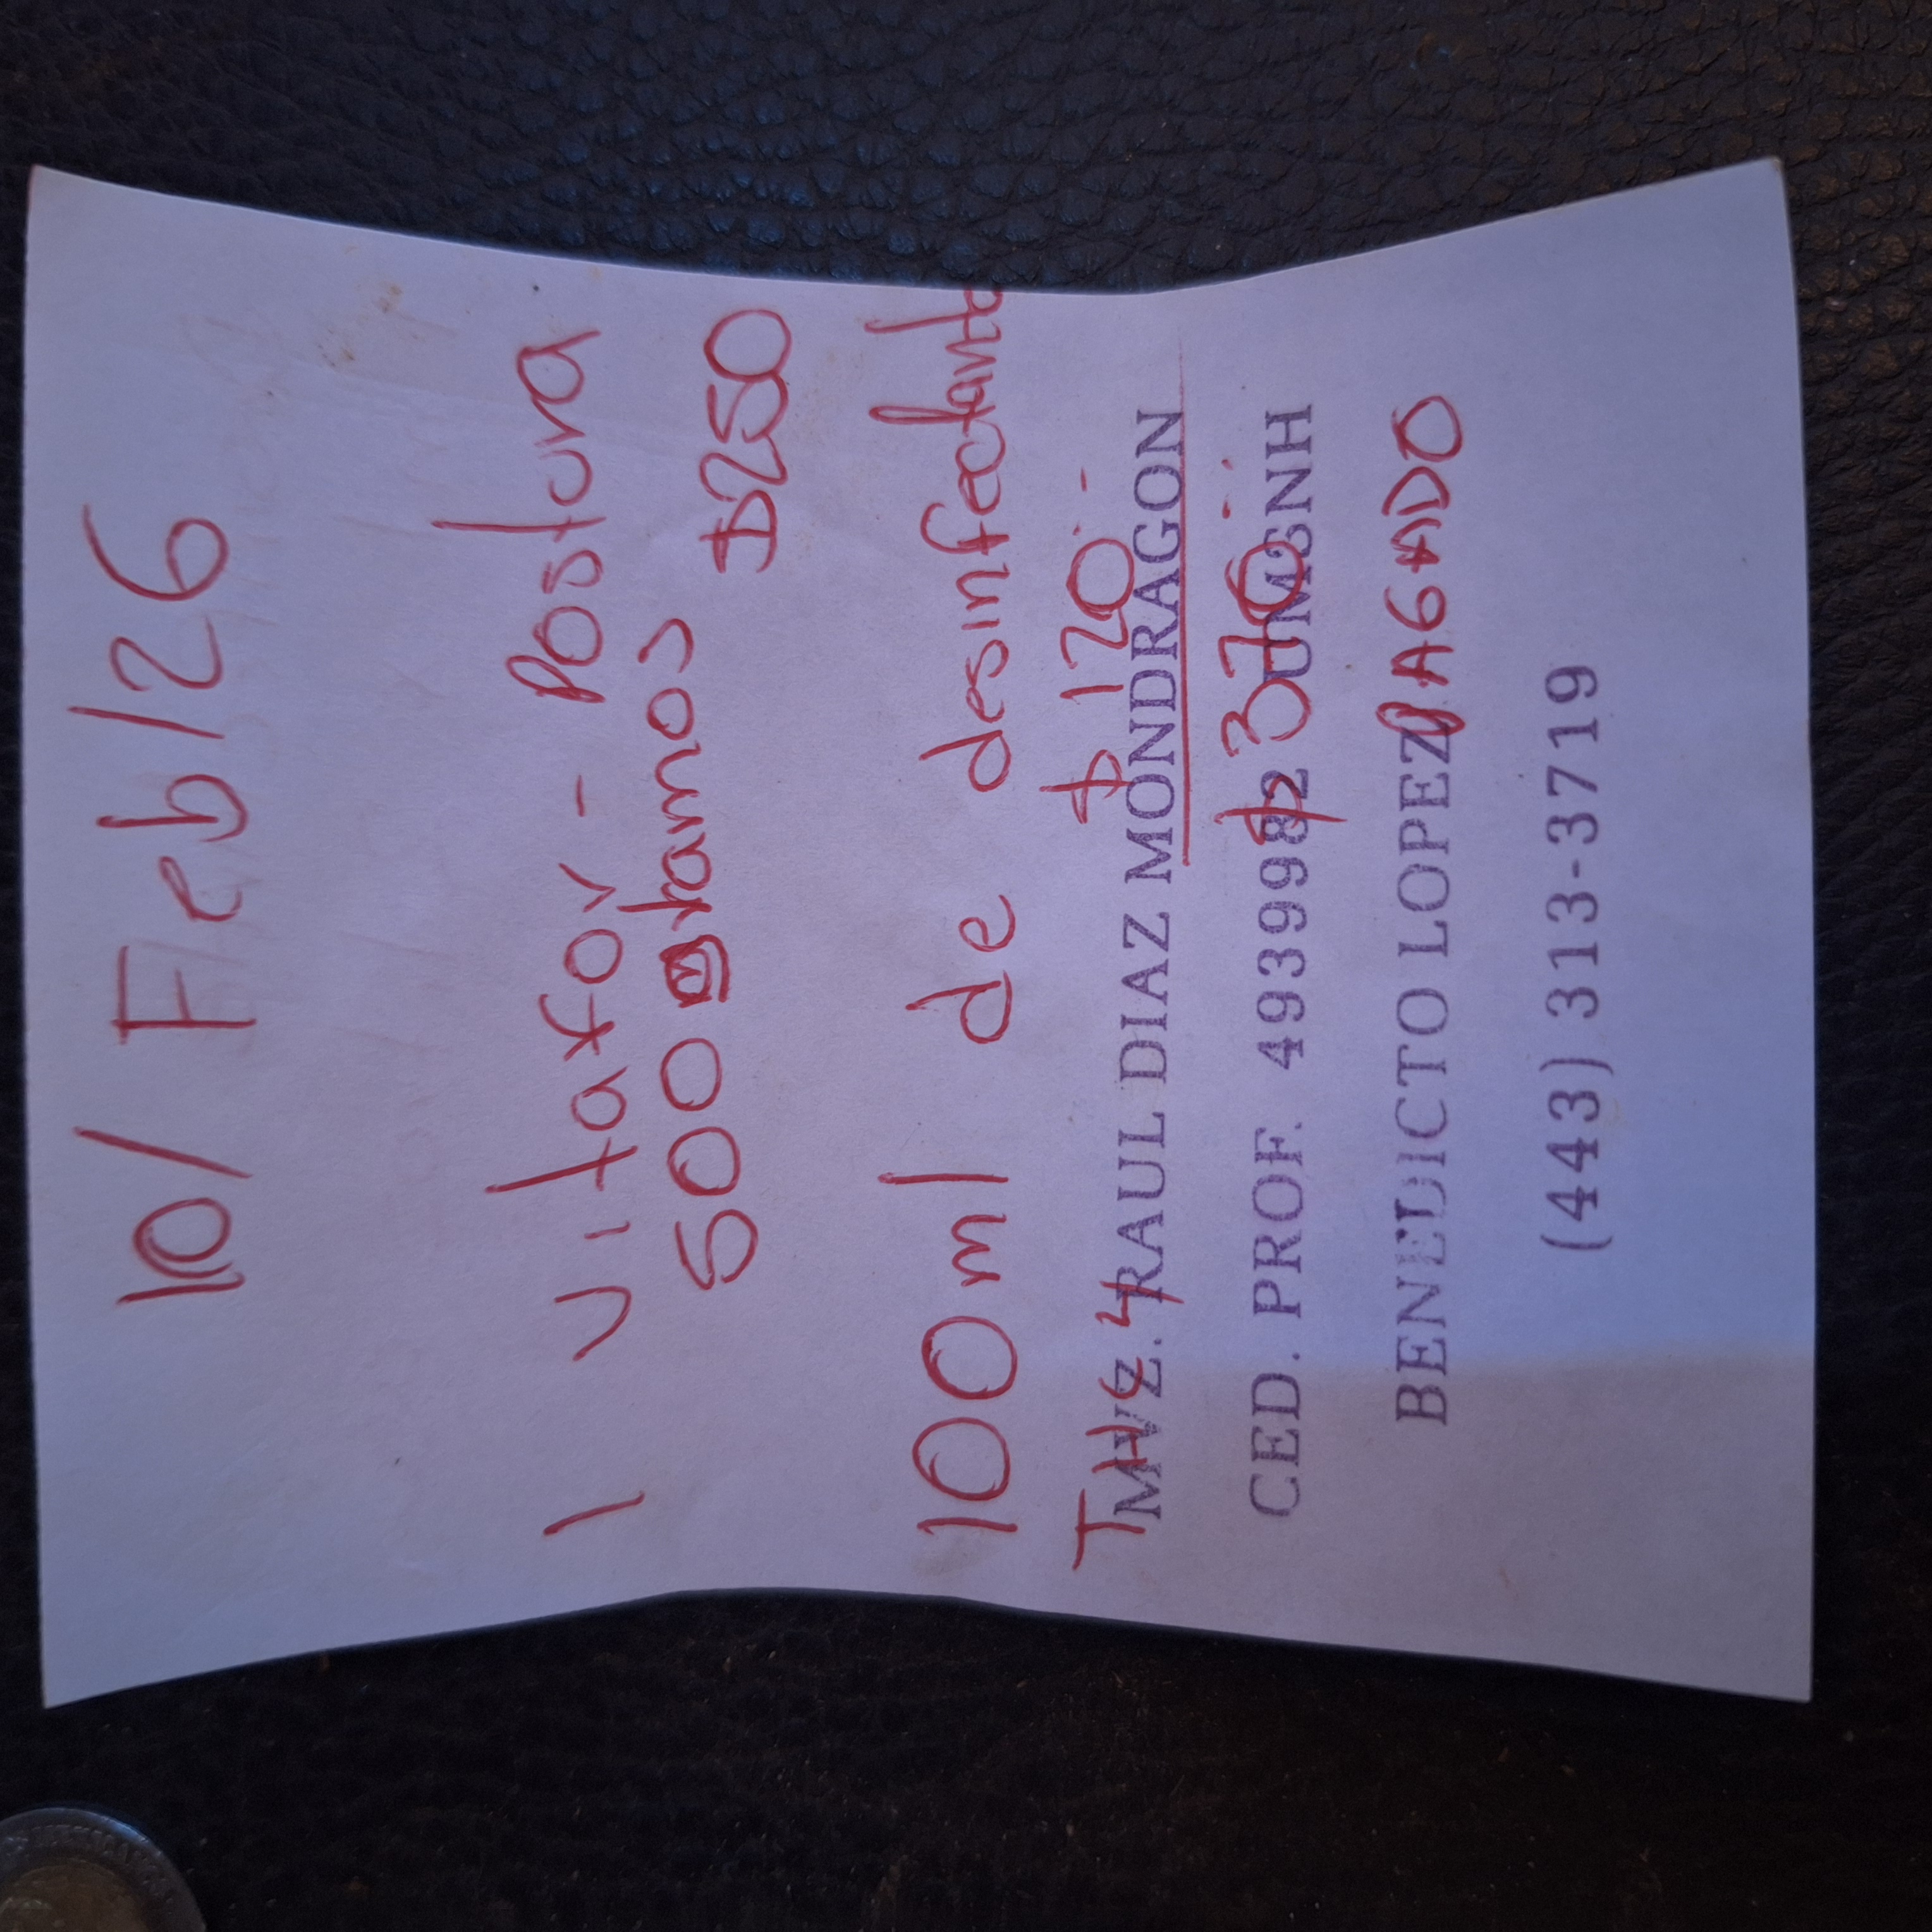 10/Feb/26
1 vitafov - Postura
500 gramos
$250
100 ml de desinfectante
$120
MVZ. RAUL DIAZ MONDRAGON
$370
CED. PROF. 4939982 UMSNH
BENEDICTO LOPEZ PAGADO
(443) 313-3719